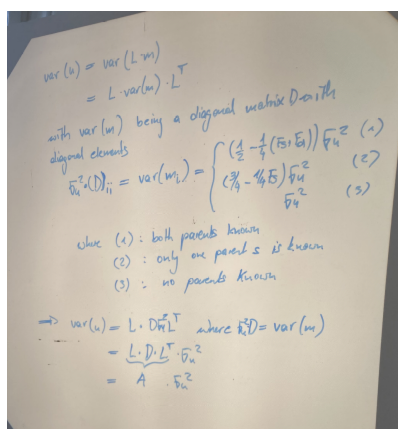 var(u) = var(L·m)
= L · var(m) · L^T
with var(m) being a diagonal matrix D with
diagonal elements
σ_u^2·(D)_ii = var(m_i) = { (1/2 - 1/4(F_s+F_d)) σ_u^2 (1)
(3/4 - 1/4 F_s) σ_u^2 (2)
σ_u^2 (3)
where (1) : both parents known
(2) : only one parent s is known
(3) : no parents known
⇒ var(u) = L · Dσ_u^2 L^T where σ_u^2 D = var(m)
= L · D · L^T · σ_u^2
= A · σ_u^2